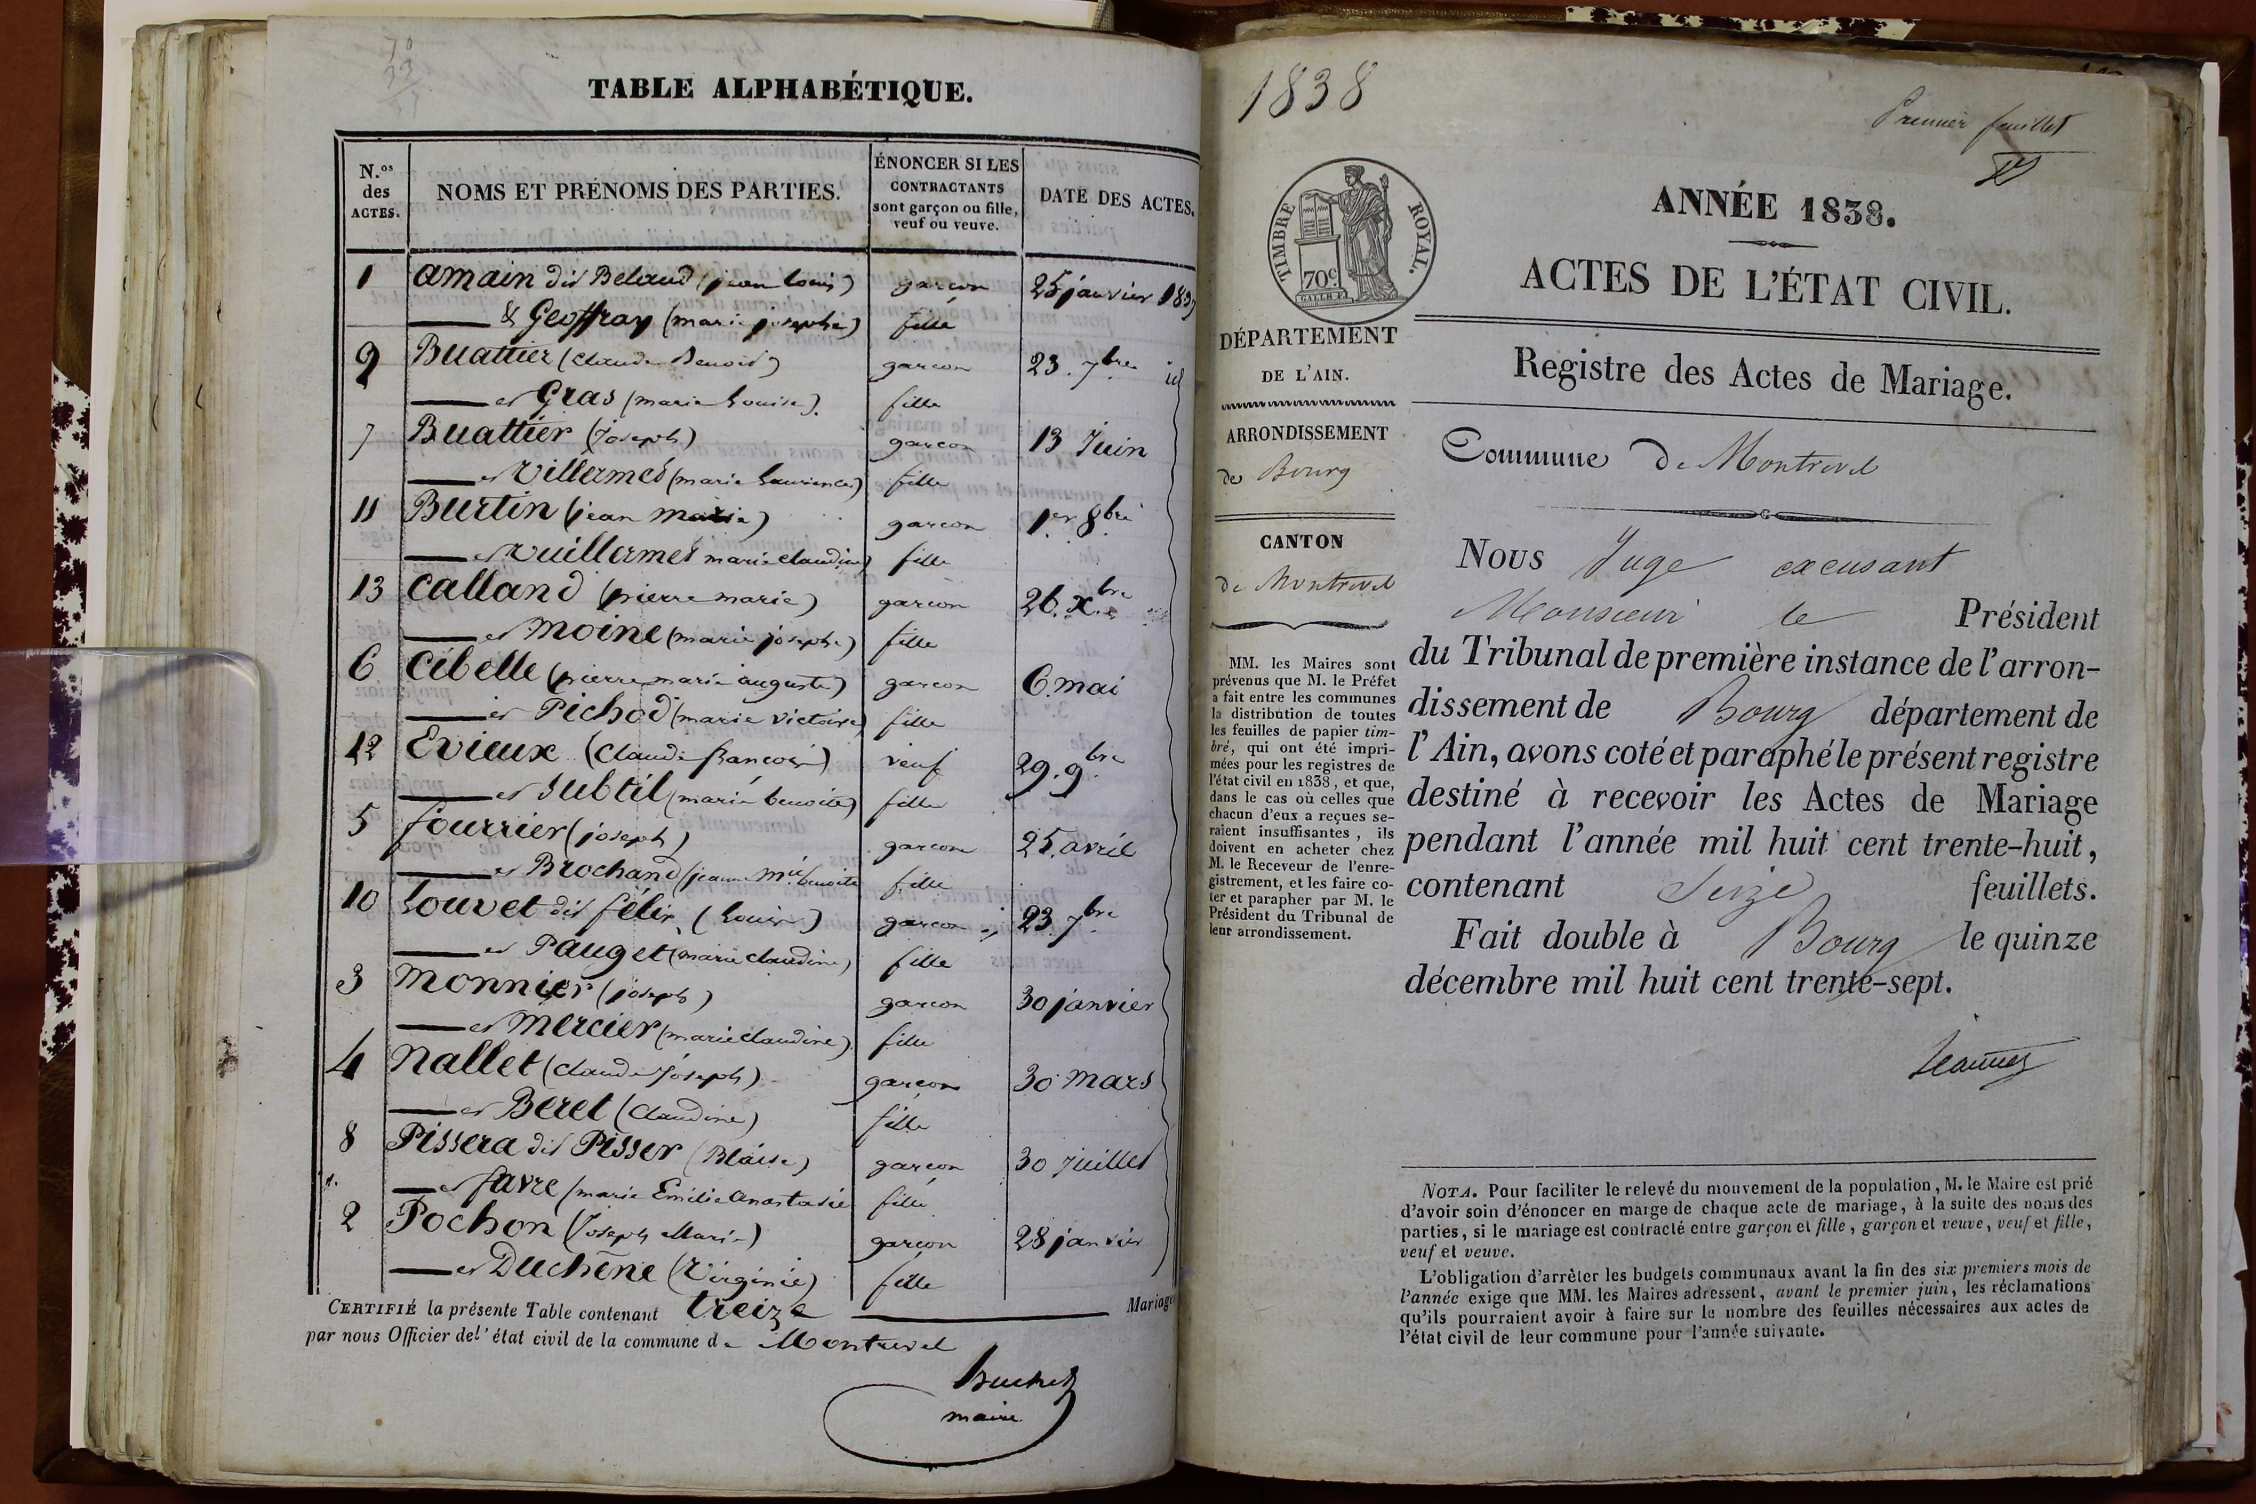 TABLE ALPHABÉTIQUE.
N.os des ACTES.
NOMS ET PRÉNOMS DES PARTIES.
ÉNONCER SI LES CONTRACTANTS sont garçon ou fille, veuf ou veuve.
DATE DES ACTES.
1 Amain dit Belaud (jean louis) garçon 25 janvier 1837
& Geoffray (marie josephe) fille
9 Buattier (Claude Benoit) garçon 23. 7bre id
et Gras (marie Louise). fille
7 Buattier (Joseph) garçon 13 Juin
et Villermes (marie Laurence) fille
11 Burtin (jean marie) garçon 1er 8bre
et Vuillermes marie claudine) fille
13 Calland (pierre marie) garçon 26. Xbre
et Moine (marie josephe) fille
6 Cibelle (pierre marie auguste) garçon 6. mai
et Pichod (marie victoire) fille
12 Evieux (Claude françois) veuf 29. 9bre
et Subtil (marie benoite) fille
5 fourrier (joseph) garçon 25. avril
et Brochand (jeanne mie benoite fille
10 Louvet dit félix (Louis) garçon 23. 7bre
et Pauget (marie claudine) fille
3 Monnier (joseph) garçon 30 janvier
et Mercier (marie claudine). fille
4 Nallet (Claude Joseph) garçon 30 Mars
et Beret (Claudine) fille
8 Pissera dit Pisser (Blaise) garçon 30 Juillet
et favre (marie Emilie Anastasie fille
2 Pochon (Joseph Marie) garçon 28 janvier
et Duchêne (Virginie) fille
CERTIFIÉ la présente Table contenant treize Mariages
par nous Officier del' état civil de la commune de Montrevel
maire
1838
Premier feuillet
TIMBRE ROYAL.
70c.
DÉPARTEMENT
DE L'AIN.
ARRONDISSEMENT
de Bourg
CANTON
de Montrevel
MM. les Maires sont
prévenus que M. le Préfet
a fait entre les communes
la distribution de toutes
les feuilles de papier tim-
bré, qui ont été impri-
mées pour les registres de
l'état civil en 1838, et que,
dans le cas où celles que
chacun d'eux a reçues se-
raient insuffisantes, ils
doivent en acheter chez
M. le Receveur de l'enre-
gistrement, et les faire co-
ter et parapher par M. le
Président du Tribunal de
leur arrondissement.
ANNÉE 1838.
ACTES DE L'ÉTAT CIVIL.
Registre des Actes de Mariage.
Commune de Montrevel
Nous Juge excusant
Monsieur le Président
du Tribunal de première instance de l'arron-
dissement de Bourg département de
l'Ain, avons coté et paraphé le présent registre
destiné à recevoir les Actes de Mariage
pendant l'année mil huit cent trente-huit,
contenant Seize feuillets.
Fait double à Bourg le quinze
décembre mil huit cent trente-sept.
NOTA. Pour faciliter le relevé du mouvement de la population, M. le Maire est prié
d'avoir soin d'énoncer en marge de chaque acte de mariage, à la suite des noms des
parties, si le mariage est contracté entre garçon et fille, garçon et veuve, veuf et fille,
veuf et veuve.
L'obligation d'arrêter les budgets communaux avant la fin des six premiers mois de
l'année exige que MM. les Maires adressent, avant le premier juin, les réclamations
qu'ils pourraient avoir à faire sur le nombre des feuilles nécessaires aux actes de
l'état civil de leur commune pour l'année suivante.